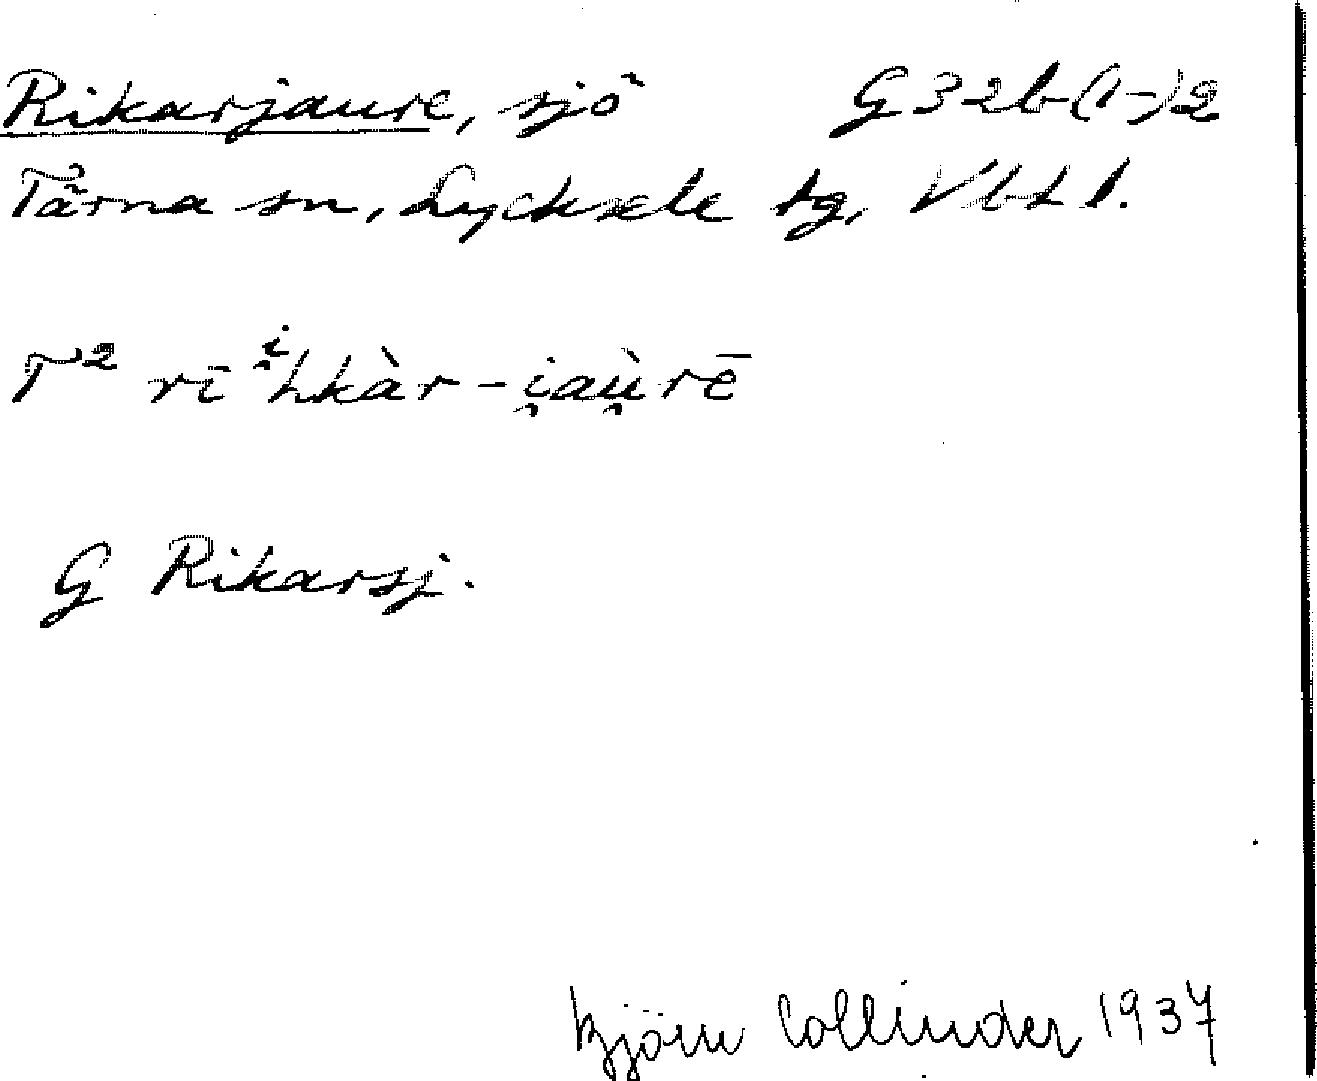 Rikarjaure, sjö G32b(1-)2
Tärna sn, Lycksele tg, Vb Ll.
T² rīi̯hkàr-i̯aù̯rē
G Rikarsj.
Björn Collinder 1937